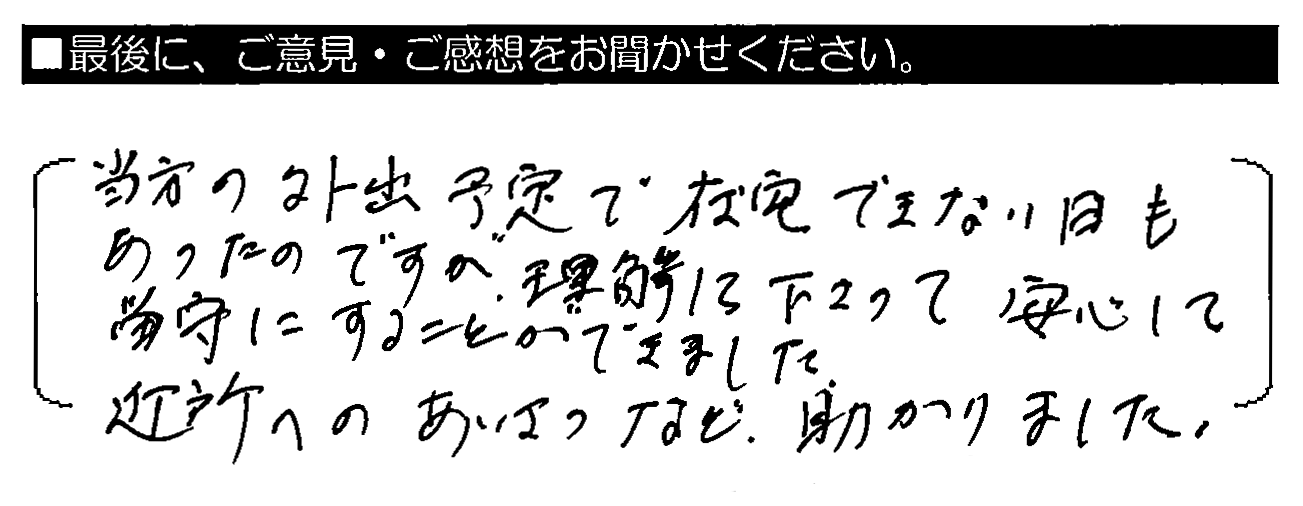 ■最後に、ご意見・ご感想をお聞かせください。
当方の外出予定で在宅できない日も
あったのですが、理解して下さって安心して
留守にすることができました。
近所へのあいさつなど、助かりました。